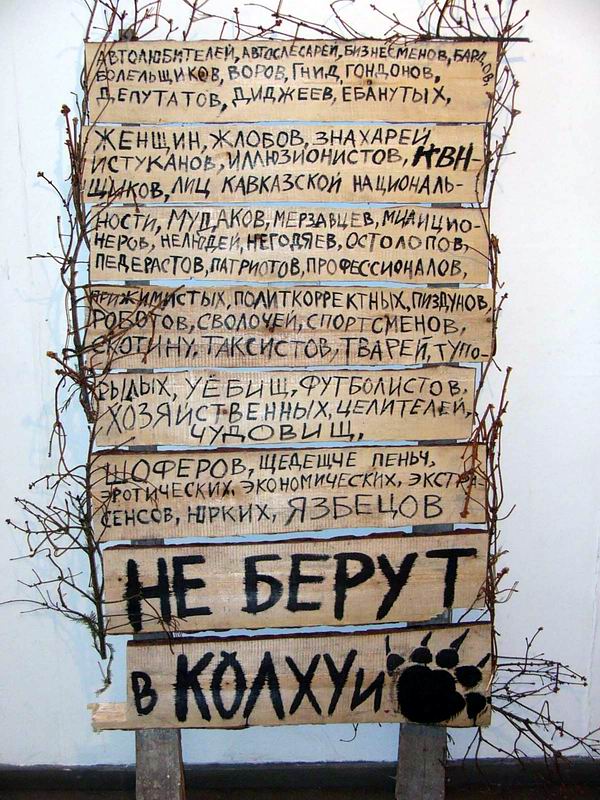 АВТОЛЮБИТЕЛЕЙ, АВТОСЛЕСАРЕЙ, БИЗНЕСМЕНОВ, БАРДОВ,
БОЛЕЛЬЩИКОВ, ВОРОВ, ГНИД, ГОНДОНОВ,
ДЕПУТАТОВ, ДИДЖЕЕВ, ЕБАНУТЫХ,
ЖЕНЩИН, ЖЛОБОВ, ЗНАХАРЕЙ
ИСТУКАНОВ, ИЛЛЮЗИОНИСТОВ, КВН-
ЩИКОВ, ЛИЦ КАВКАЗСКОЙ НАЦИОНАЛЬ-
НОСТИ, МУДАКОВ, МЕРЗАВЦЕВ, МИЛИЦИО-
НЕРОВ, НЕЛЮДЕЙ, НЕГОДЯЕВ, ОСТОЛОПОВ,
ПЕДЕРАСТОВ, ПАТРИОТОВ, ПРОФЕССИОНАЛОВ,
ПРИЖИМИСТЫХ, ПОЛИТКОРРЕКТНЫХ, ПИЗДУНОВ,
РОБОТОВ, СВОЛОЧЕЙ, СПОРТСМЕНОВ,
СКОТИНУ, ТАКСИСТОВ, ТВАРЕЙ, ТУПО-
РЫЛЫХ, УЁБИЩ, ФУТБОЛИСТОВ,
ХОЗЯЙСТВЕННЫХ, ЦЕЛИТЕЛЕЙ,
ЧУДОВИЩ,
ШОФЕРОВ, ЩЕДЕЩЧЕ ПЕНЬЧ,
ЭРОТИЧЕСКИХ, ЭКОНОМИЧЕСКИХ, ЭКСТРА-
СЕНСОВ, ЮРКИХ, ЯЗБЕЦОВ
НЕ БЕРУТ
В КОЛХУИ